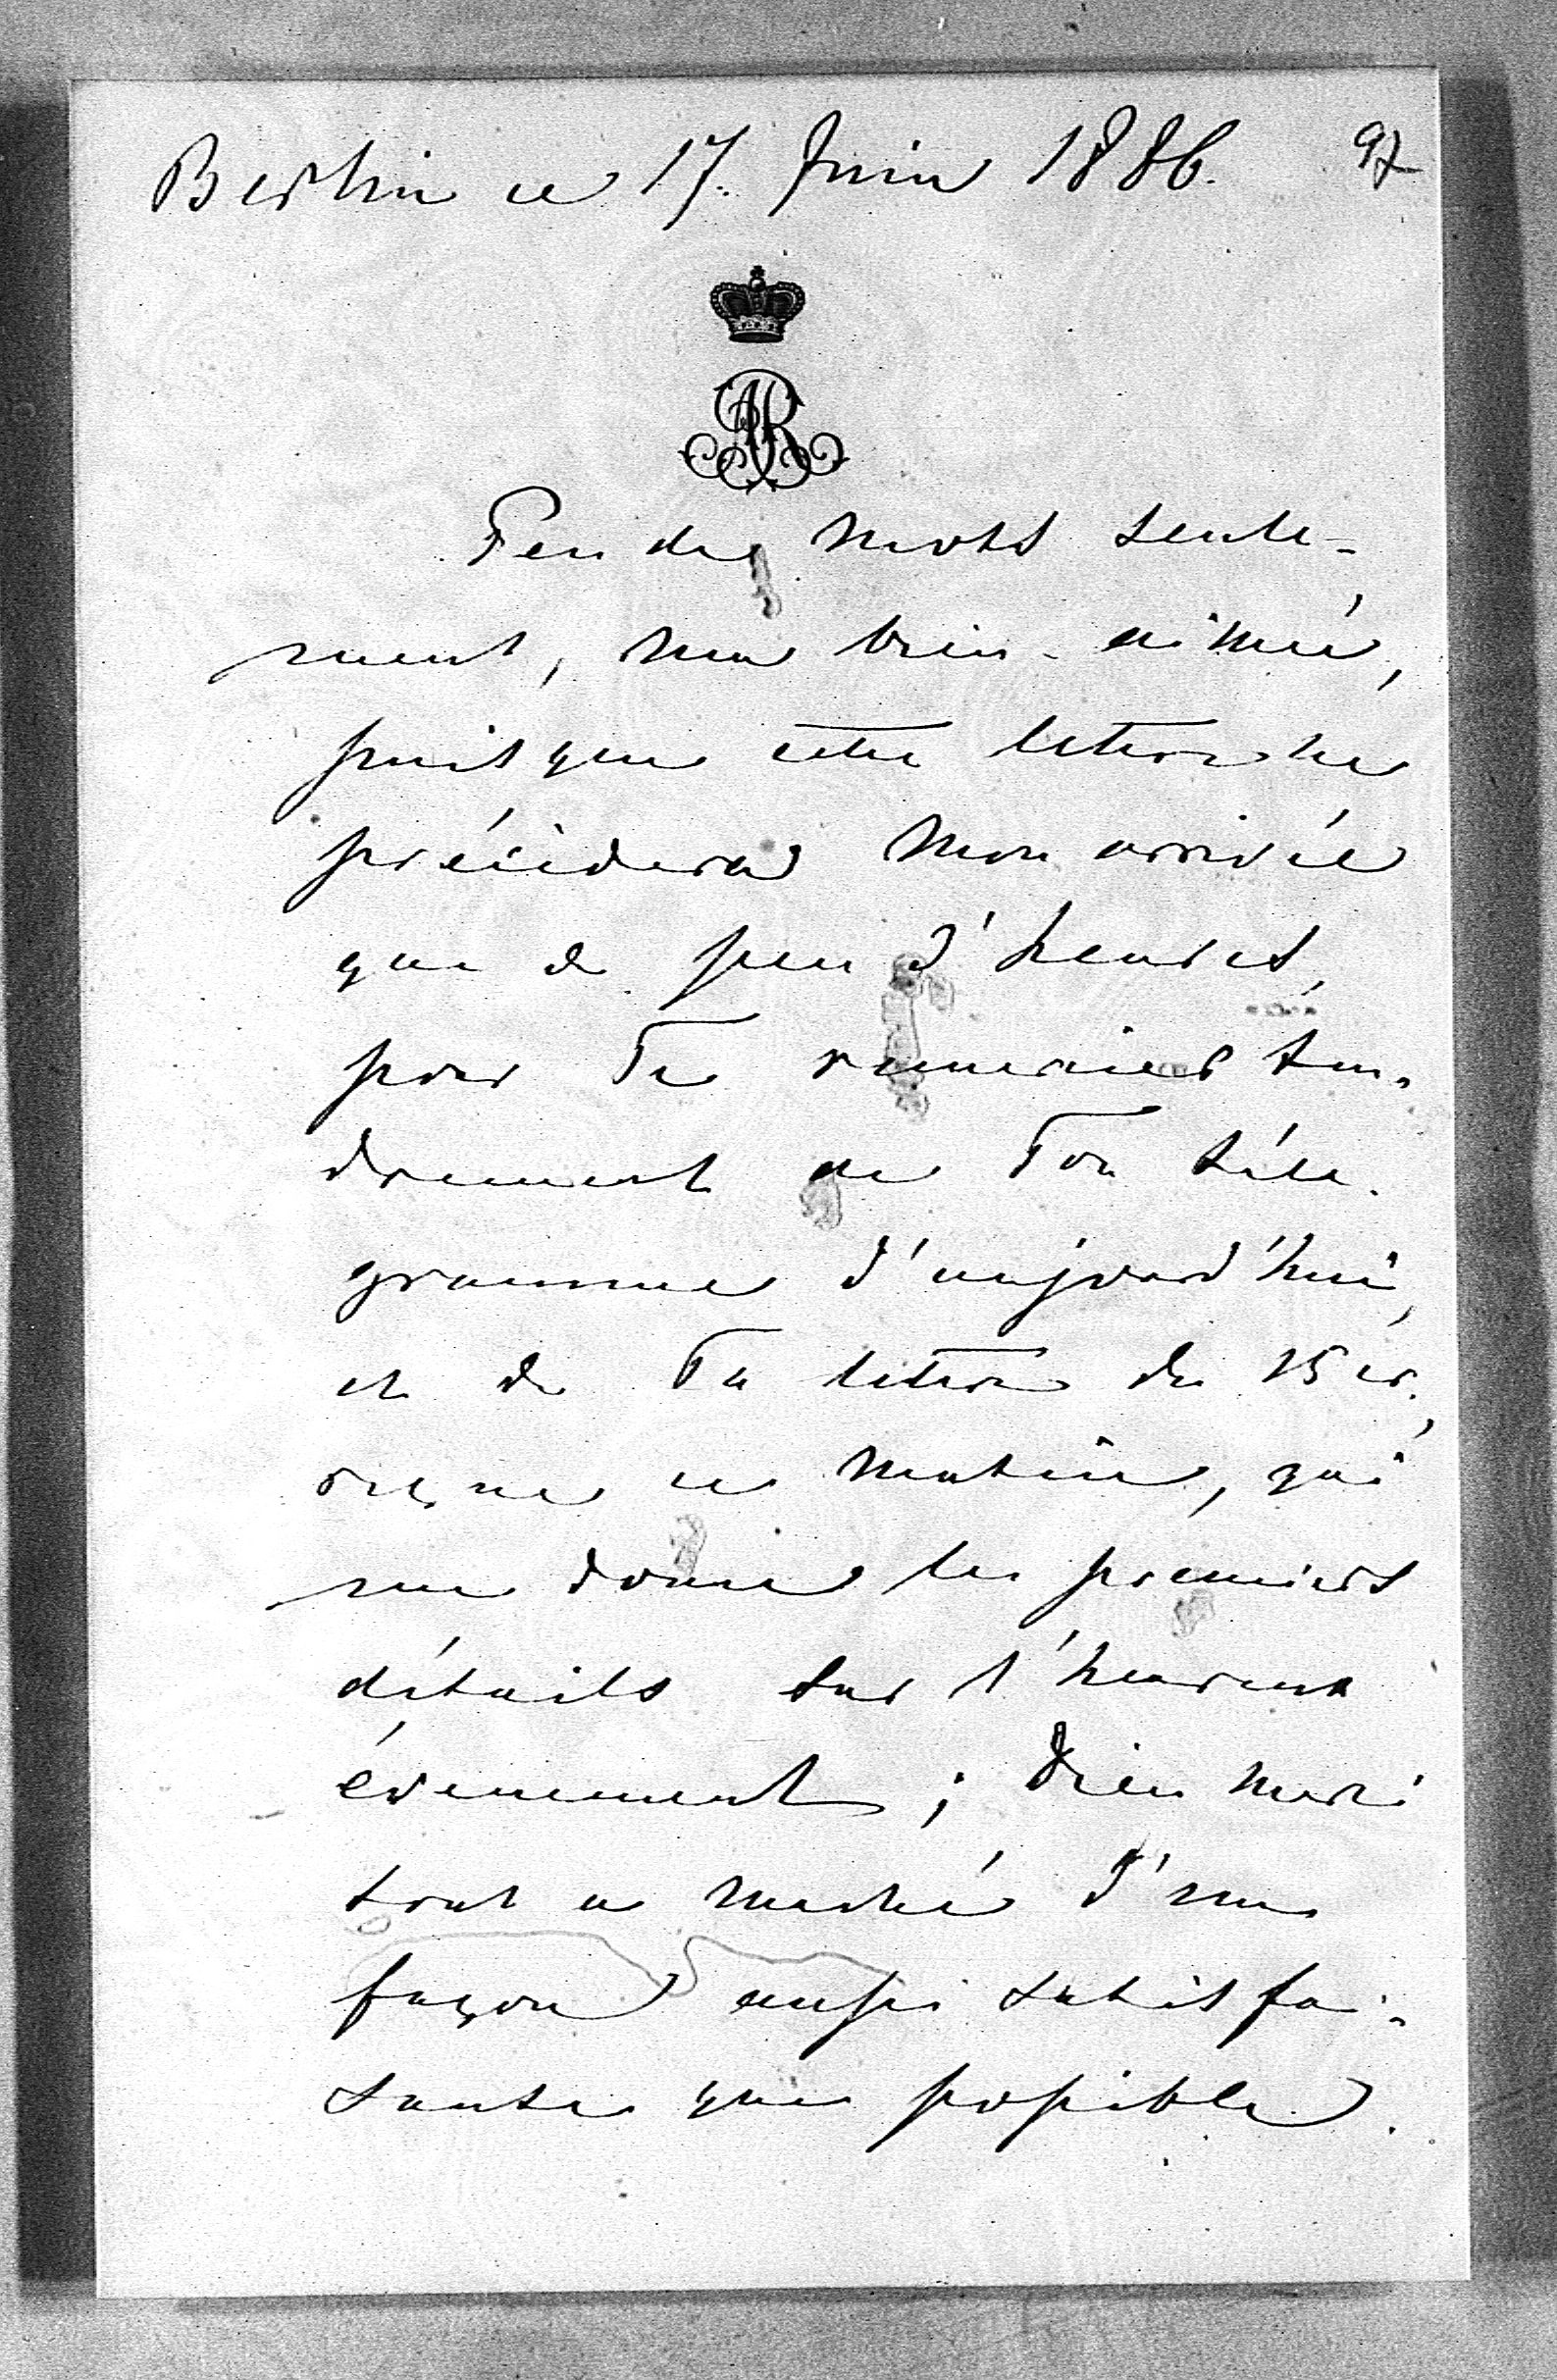 Berlin ce 17. Juin 1886. 97
AR
Peu de mots seule-
ment, ma bien-aimée,
puisque cette lettre ne
précédera mon arrivée
que de peu d'heures,
pour Te remercier ten-
drement de Ton télé-
gramme d'aujourd'hui,
et de Ta lettre du 15 cr.,
reçue ce matin, qui
me donne les premiers
détails sur l'heureux
évenement; Dieu merci
tout a marché d'une
façon aussi satisfai-
sante que possible.